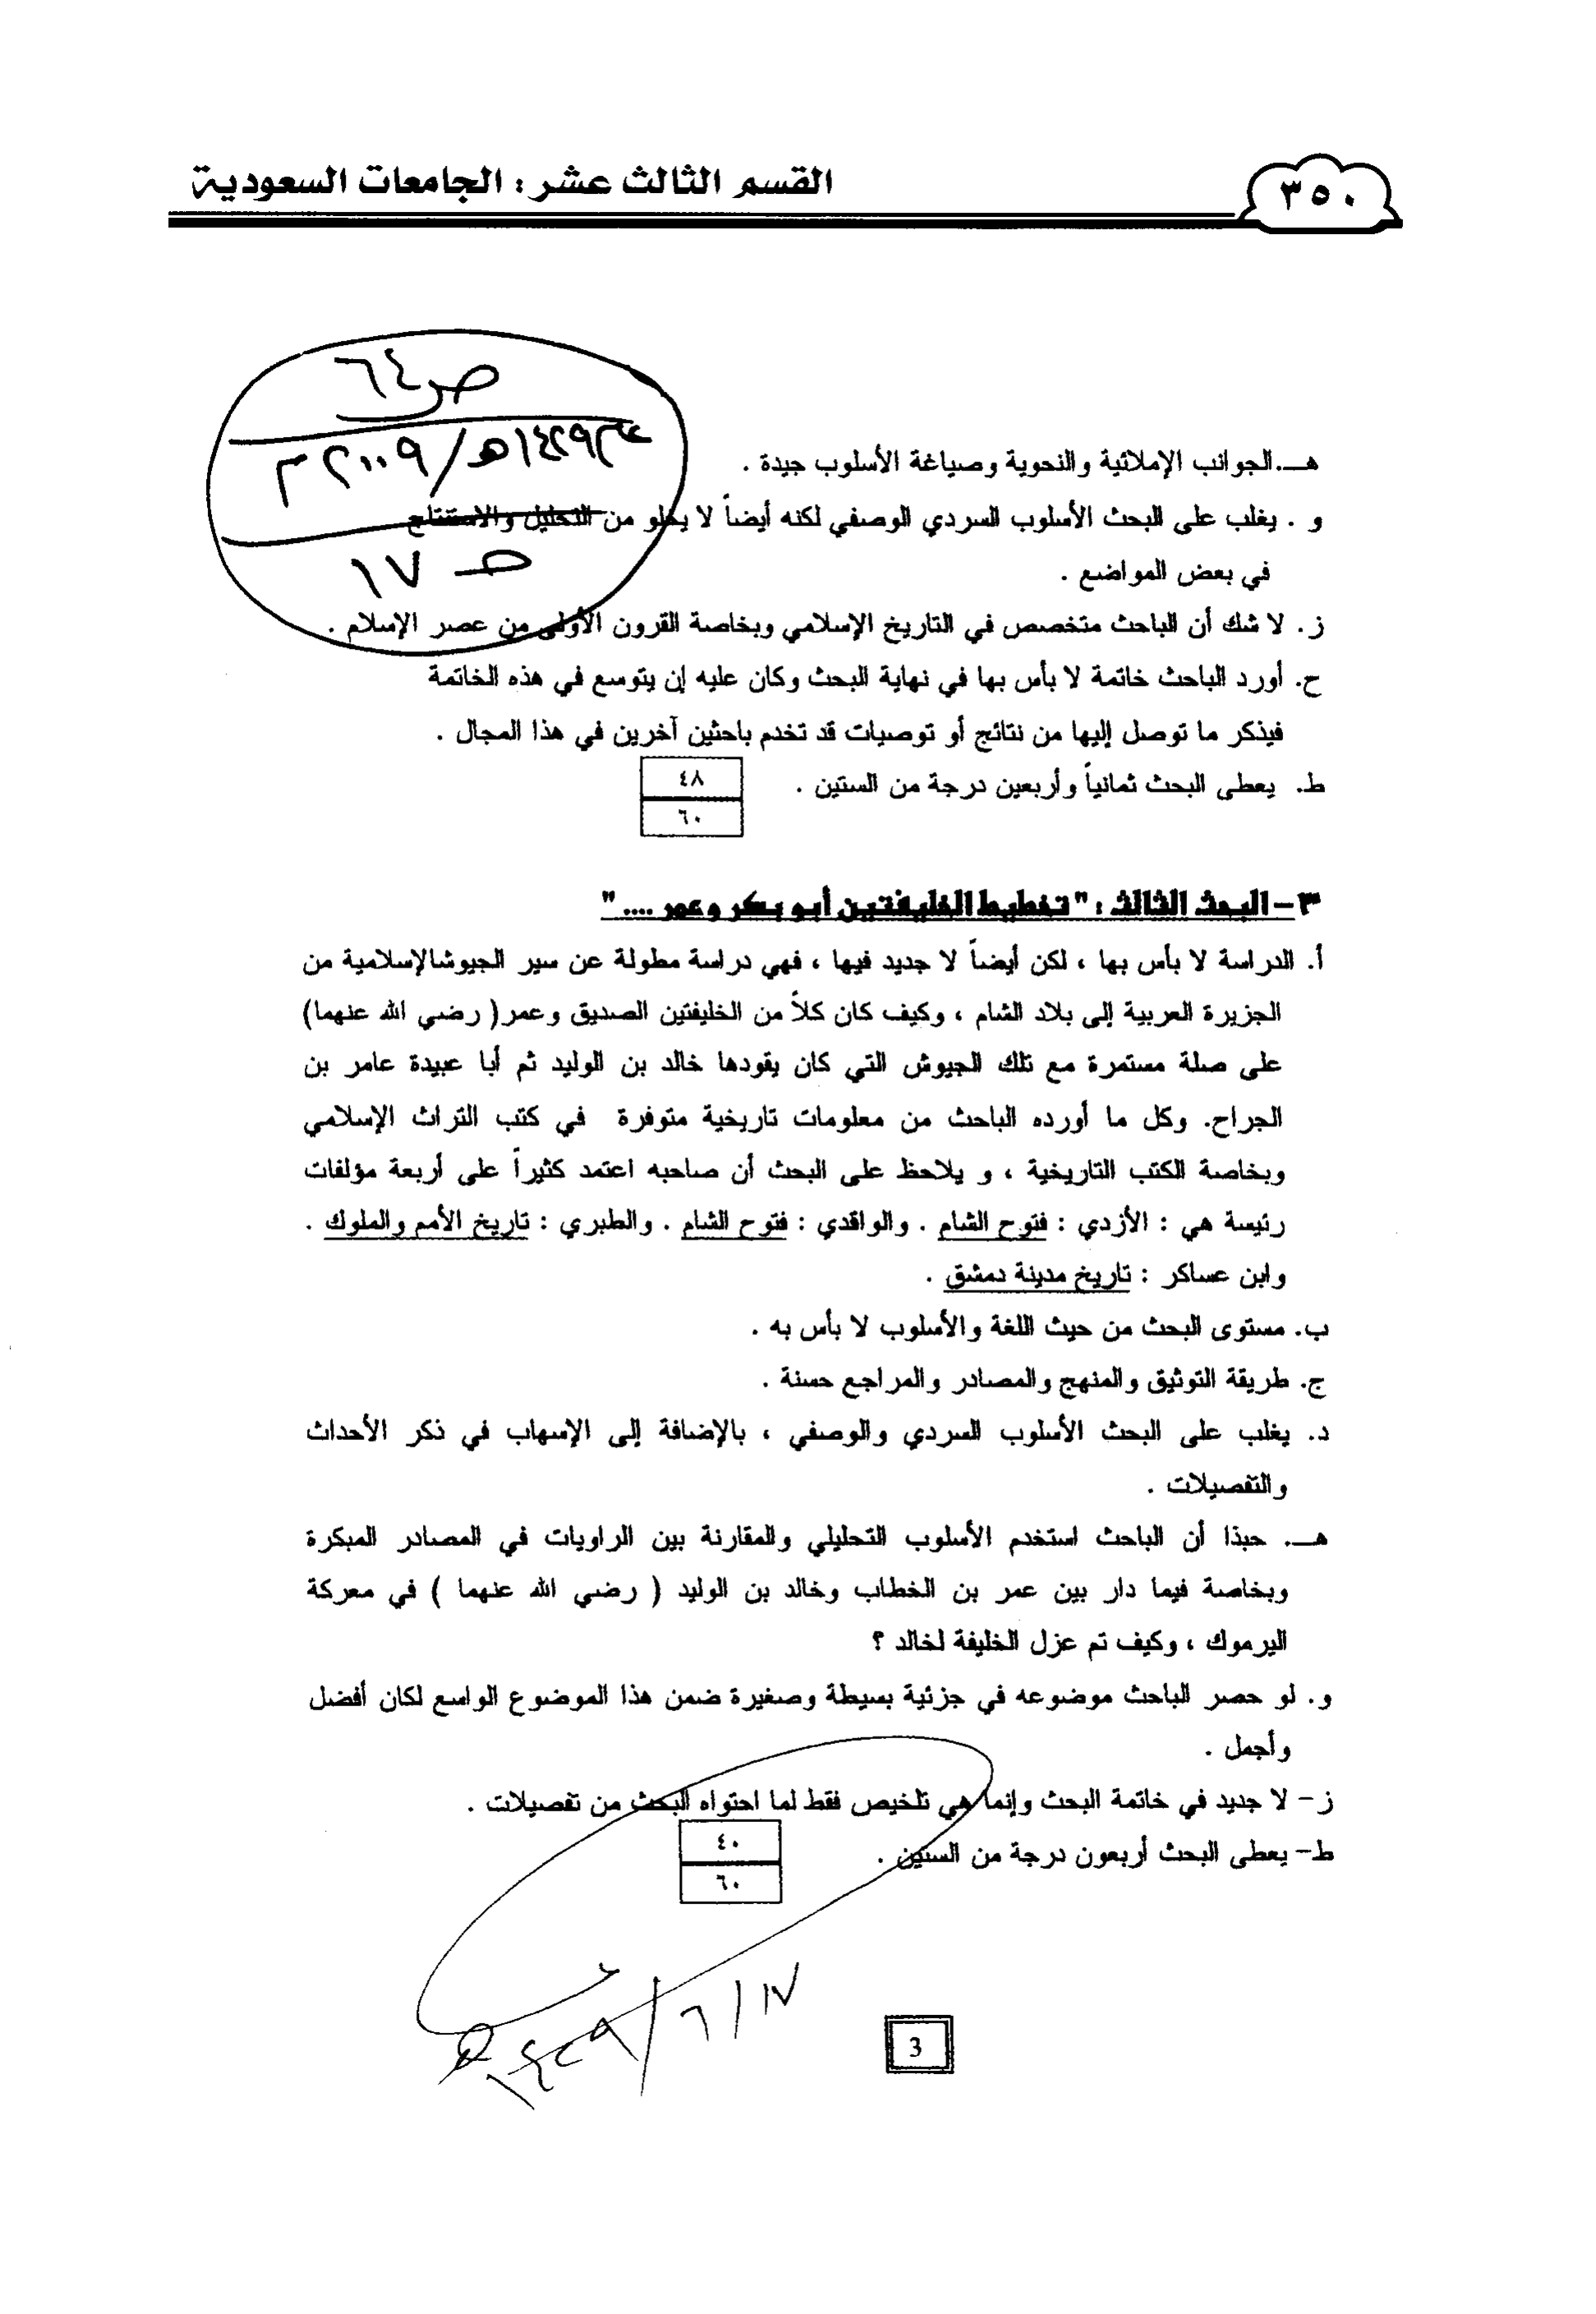 ٣٥٠
القسم الثالث عشر : الجامعات السعودية
ص ٦٤
١٤٢٩هـ/٢٠٠٩م
ص ١٧
هـ.الجوانب الإملائية والنحوية وصياغة الأسلوب جيدة .
و . يغلب على البحث الأسلوب السردي الوصفي لكنه أيضاً لا يخلو من التحليل والاستنتاج
في بعض المواضع .
ز. لا شك أن الباحث متخصص في التاريخ الإسلامي وبخاصة القرون الأولى من عصر الإسلام .
ح. أورد الباحث خاتمة لا بأس بها في نهاية البحث وكان عليه إن يتوسع في هذه الخاتمة
فيذكر ما توصل إليها من نتائج أو توصيات قد تخدم باحثين آخرين في هذا المجال .
ط. يعطى البحث ثمانياً وأربعين درجة من الستين .
٤٨
٦٠
٣- البحث الثالث : " تخطيط الخليفتين أبو بكر وعمر .... "
أ. الدراسة لا بأس بها ، لكن أيضاً لا جديد فيها ، فهي دراسة مطولة عن سير الجيوشالإسلامية من
الجزيرة العربية إلى بلاد الشام ، وكيف كان كلاً من الخليفتين الصديق وعمر( رضي الله عنهما)
على صلة مستمرة مع تلك الجيوش التي كان يقودها خالد بن الوليد ثم أبا عبيدة عامر بن
الجراح. وكل ما أورده الباحث من معلومات تاريخية متوفرة في كتب التراث الإسلامي
وبخاصة الكتب التاريخية ، و يلاحظ على البحث أن صاحبه اعتمد كثيراً على أربعة مؤلفات
رئيسة هي : الأزدي : فتوح الشام . والواقدي : فتوح الشام . والطبري : تاريخ الأمم والملوك .
وابن عساكر : تاريخ مدينة دمشق .
ب. مستوى البحث من حيث اللغة والأسلوب لا بأس به .
ج. طريقة التوثيق والمنهج والمصادر والمراجع حسنة .
د. يغلب على البحث الأسلوب السردي والوصفي ، بالإضافة إلى الإسهاب في ذكر الأحداث
والتفصيلات .
هـ. حبذا أن الباحث استخدم الأسلوب التحليلي والمقارنة بين الراويات في المصادر المبكرة
وبخاصة فيما دار بين عمر بن الخطاب وخالد بن الوليد ( رضي الله عنهما ) في معركة
اليرموك ، وكيف تم عزل الخليفة لخالد ؟
و. لو حصر الباحث موضوعه في جزئية بسيطة وصغيرة ضمن هذا الموضوع الواسع لكان أفضل
وأجمل .
ز- لا جديد في خاتمة البحث وإنما هي تلخيص فقط لما احتواه البحث من تفصيلات .
ط- يعطى البحث أربعون درجة من الستين .
٤٠
٦٠
١٧/٦/١٤٢٩هـ
3